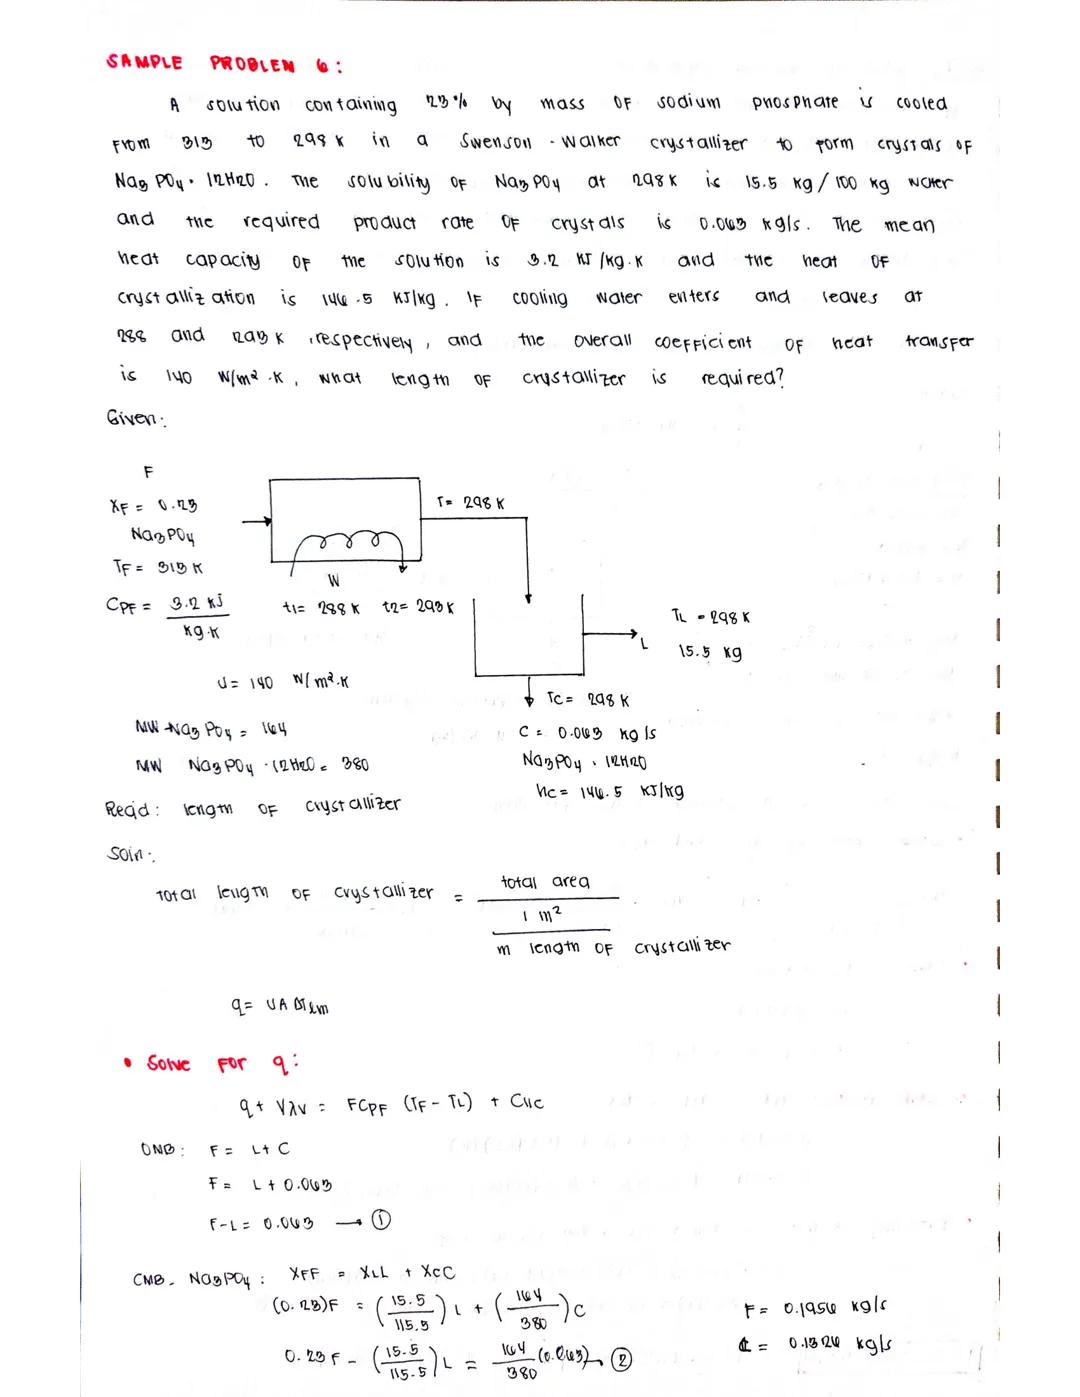 SAMPLE PROBLEM 6:
A solution containing 23% by mass OF sodium phosphate is cooled
From 313 to 298 K in a Swenson-Walker crystallizer to form crystals OF
Na3PO4 · 12H2O. The solubility OF Na3PO4 at 298K is 15.5 kg/100 kg water
and the required product rate OF crystals is 0.063 kg/s. The mean
heat capacity OF the solution is 3.2 KJ/kg.K and the heat OF
crystallization is 146.5 KJ/kg. IF cooling water enters and leaves at
288 and 293 K, respectively, and the overall coefficient OF heat transfer
is 140 W/m² ·K, what length OF crystallizer is required?
Given:
F
XF = 0.23
Na3PO4
TF = 313 K
CPF = 3.2 KJ / kg.K
T= 298 K
W
t1= 288 K t2= 293 K
TL = 298 K
L
15.5 kg
U= 140 W/m².K
TC= 298 K
MW Na3PO4 = 164
C = 0.063 kg/s
MW Na3PO4 · 12H2O = 380
Na3PO4 · 12H2O
Hc = 146.5 KJ/kg
Req'd: length OF crystallizer
Soln:
Total length OF crystallizer = total area / 1 m² / m length OF crystallizer
q= UAΔTlm
• Solve For q:
q + Vλv = FCPF (TF - TL) + CHc
OMB: F = L + C
F = L + 0.063
F-L = 0.063 → ①
CMB - Na3PO4: XFF = XLL + XCC
(0.23)F = (15.5/115.5)L + (164/380)C
F = 0.1956 kg/s
0.23F - (15.5/115.5)L = 164/380 (0.063) → ②
L = 0.1326 kg/s